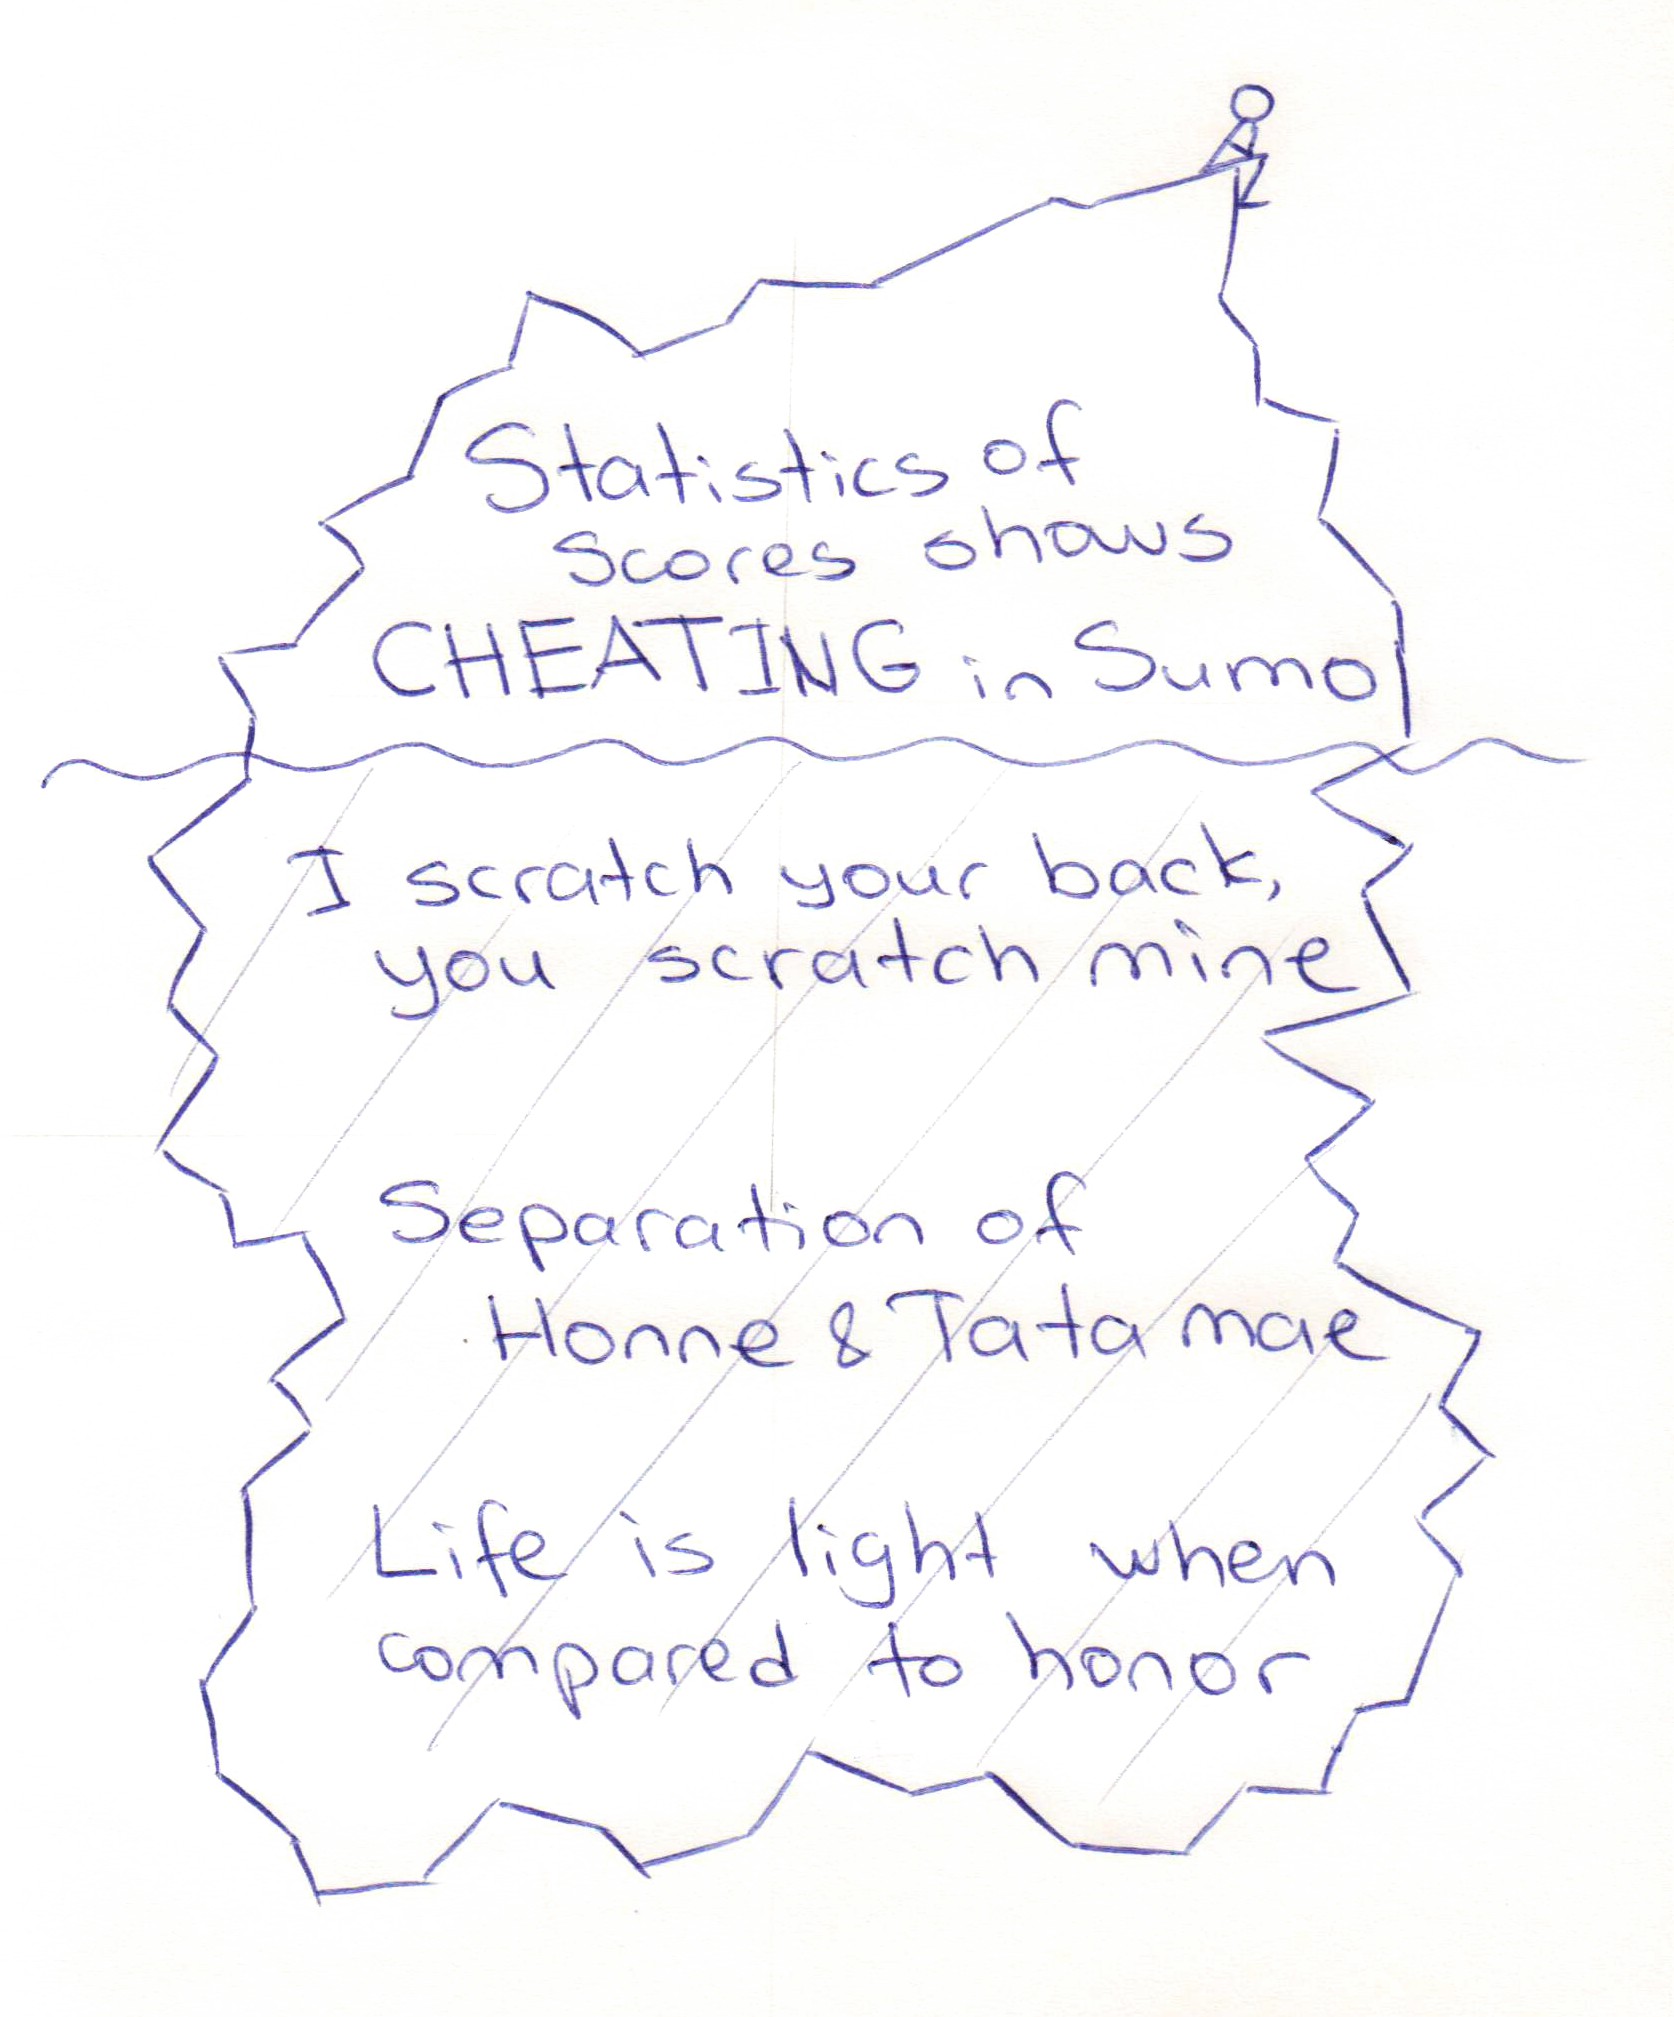 Statistics of
scores shows
CHEATING in Sumo
I scratch your back,
you scratch mine
Separation of
Honne & Tatamae
Life is light when
compared to honor